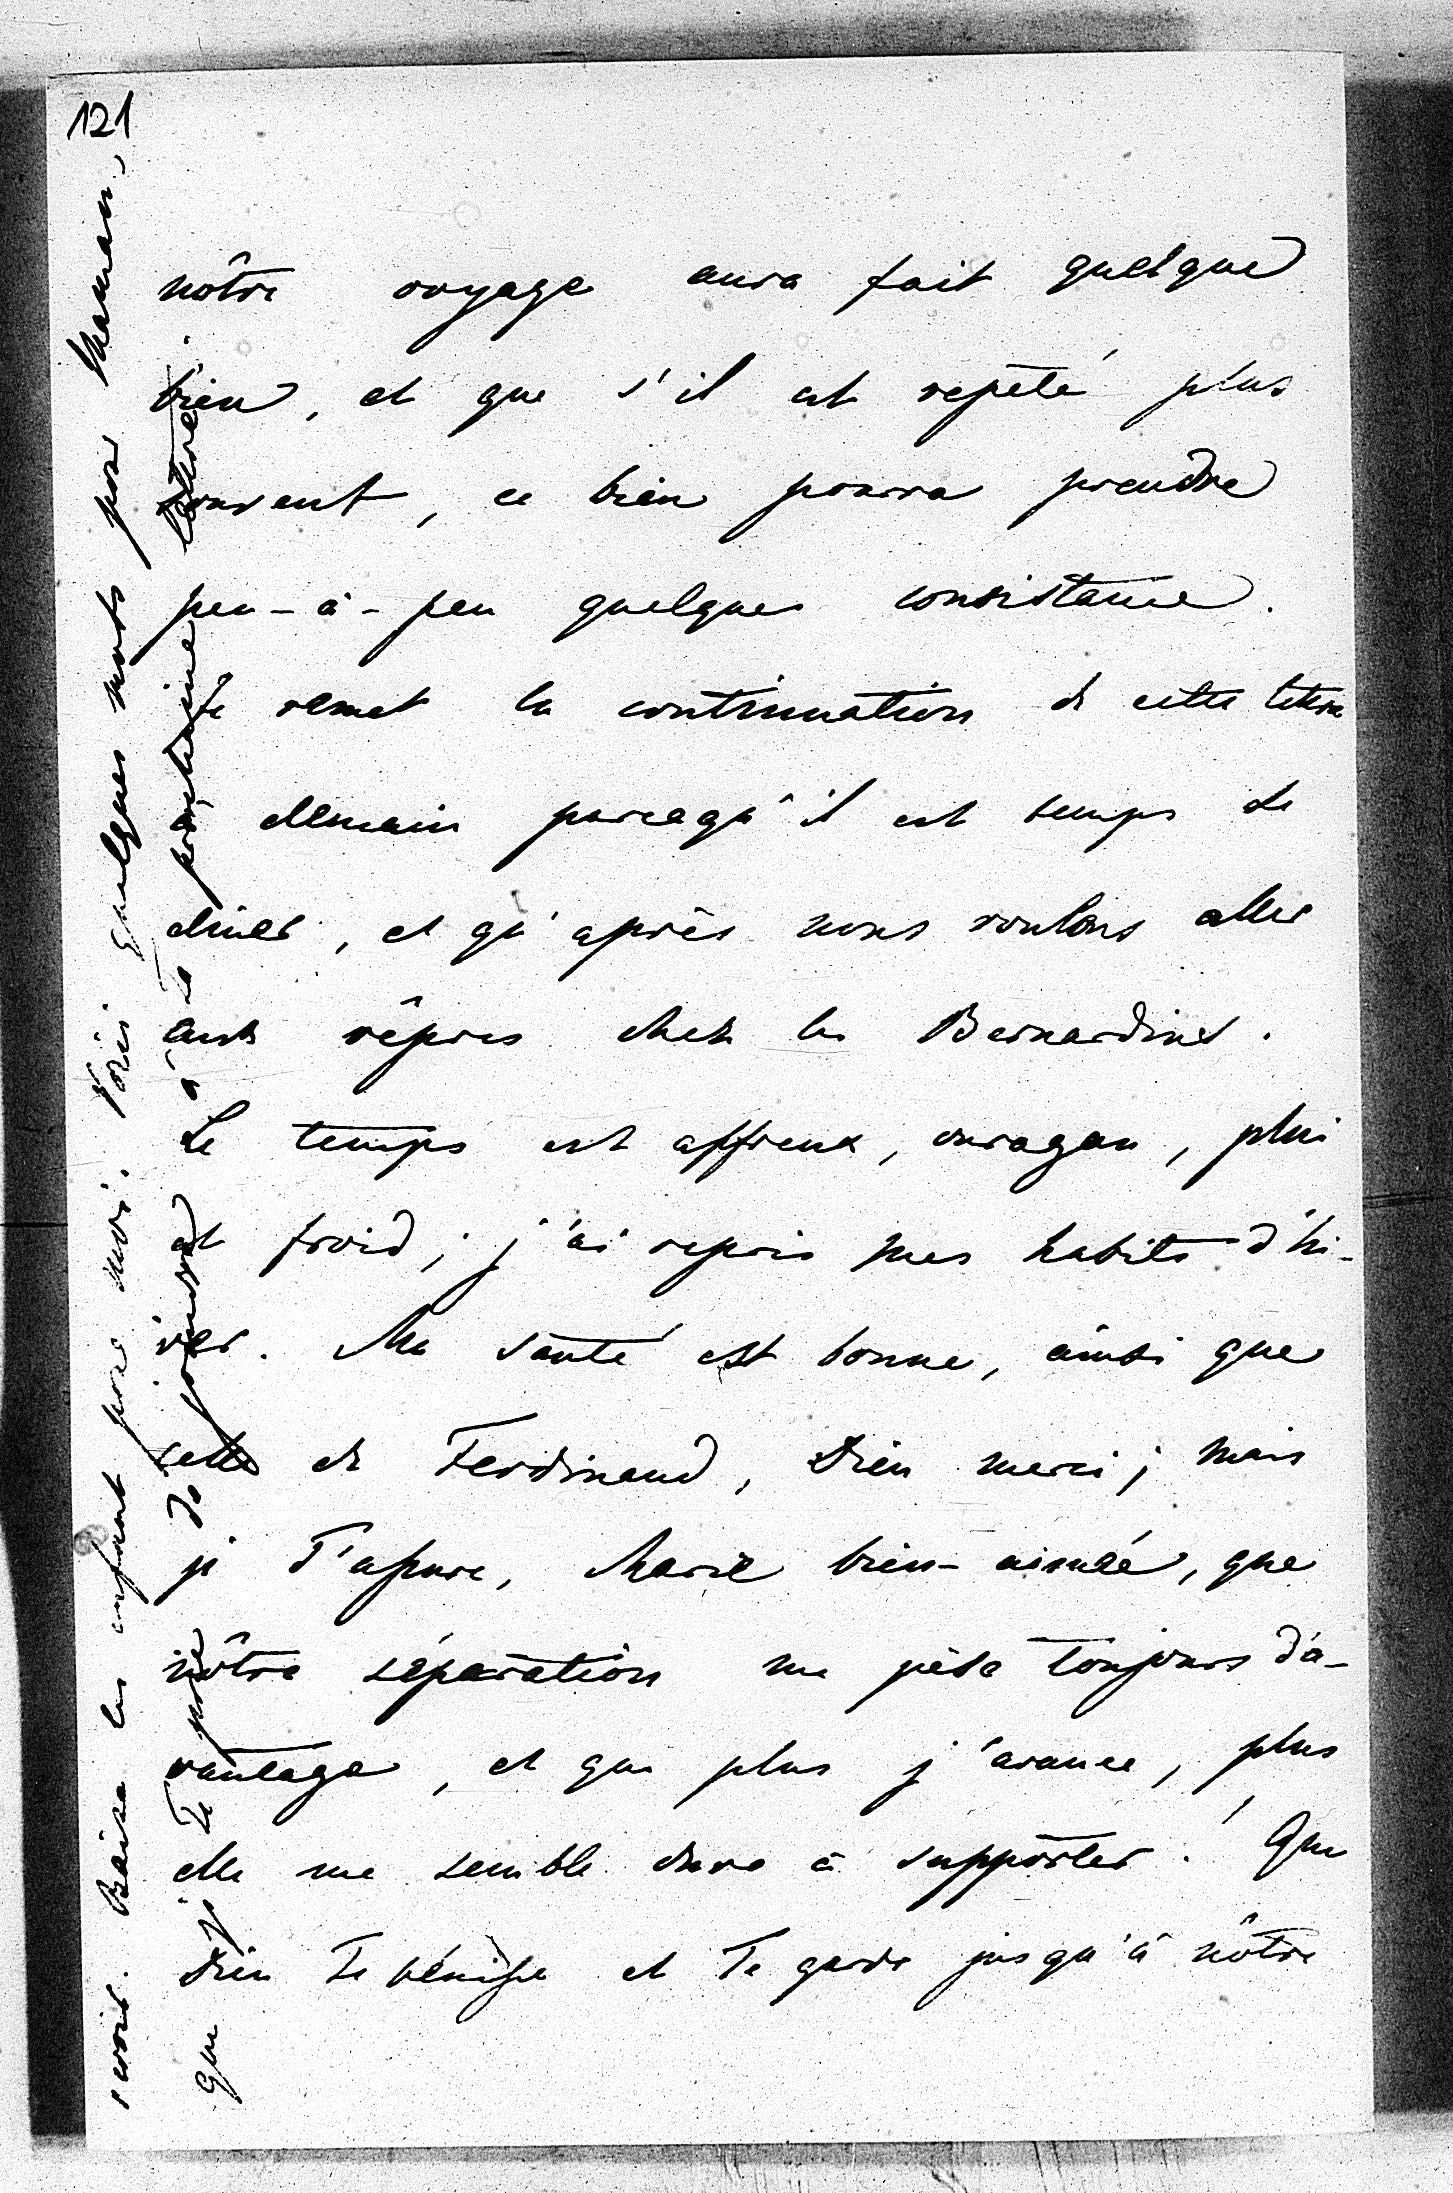 121
nôtre voyage aura fait quelque
bien, et que s'il est repété plus
souvent, ce bien pourra prendre
peu-à-peu quelques consistance.
Je remet la continuation de cette lettre
à demain parcequ'il est temps de
diner, et qu'après nous voulons aller
aux vêpres chez les Bernardines.
Le temps est affreux, ouragan, plui
et froid; j'ai repris mes habits d'hi-
ver. Ma santé est bonne, ainsi que
celle de Ferdinand, Dieu merci; mais
je T'assure, Marie bien-aimée, que
nôtre séparation me pèse toujours d'a-
vantage, et que plus j'avance, plus
elle me semble dure à supporter. Que
Dieu Te bénisse et Te garde jusqu'à nôtre
revoir. Baise les enfants pour moi. Voici quelques mots pour Maman,
que je Te prie de joindre à Ta prochaine lettre.